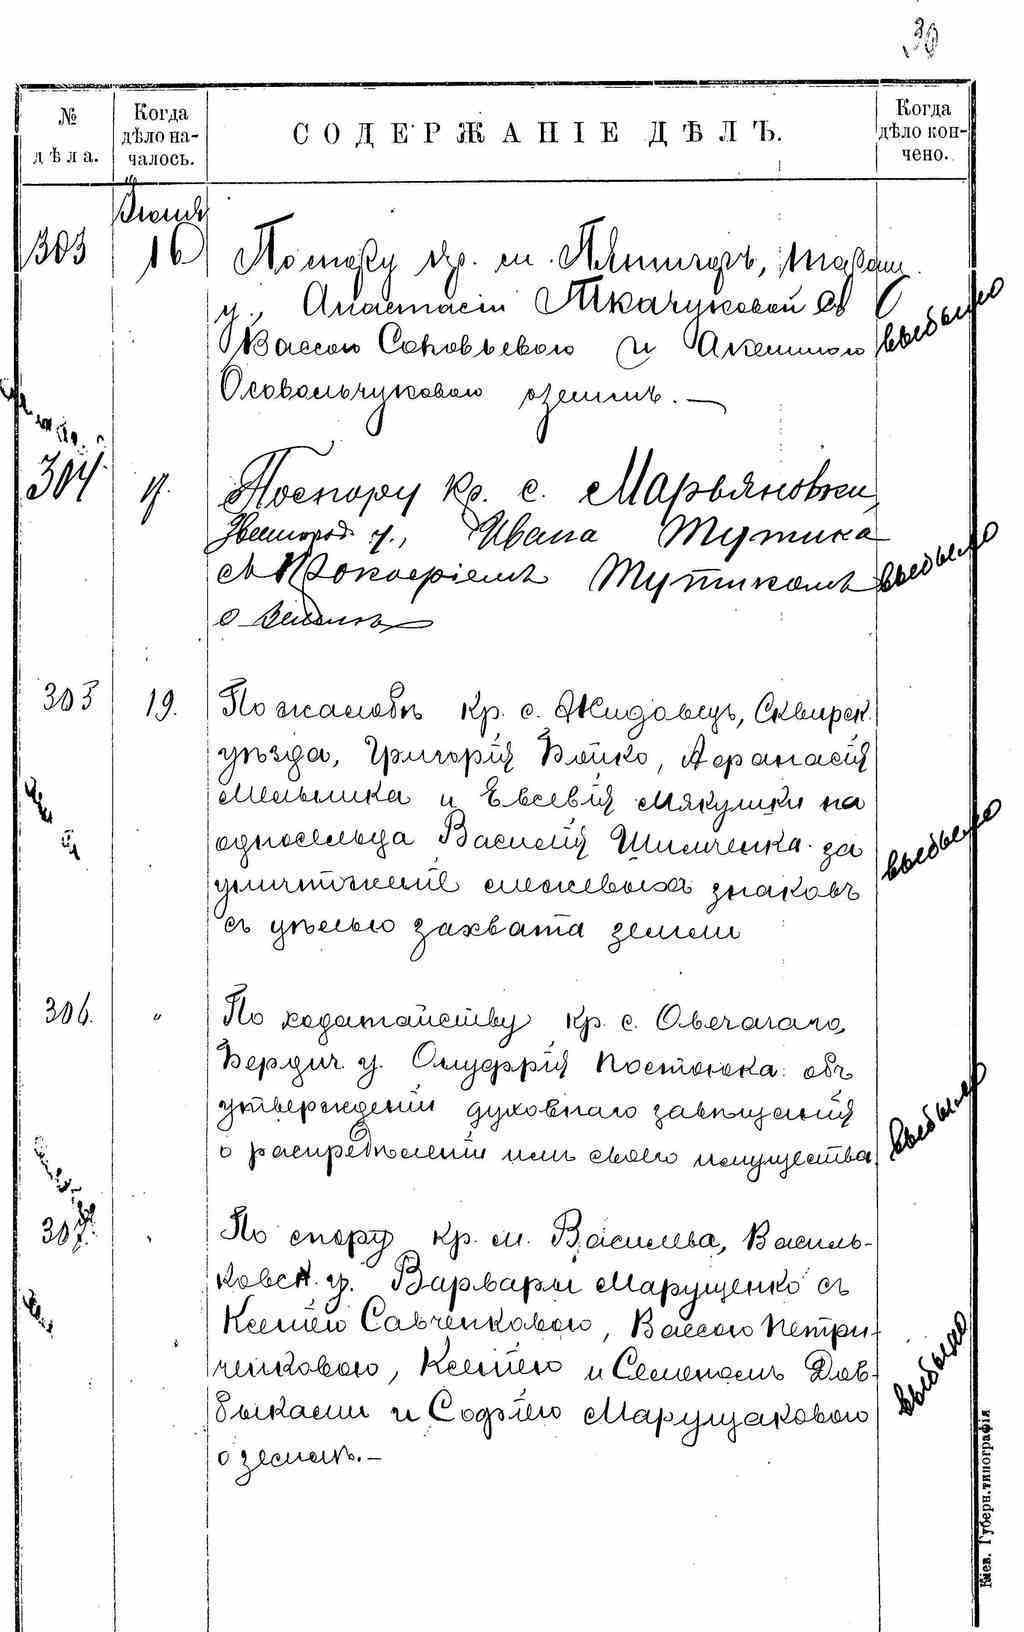 30
№ дѣла.
Когда дѣло на-чалось.
СОДЕРЖАНІЕ ДѢЛЪ.
Когда дѣло кон-чено.
303
16
По спору кр. м. Пятигоръ, Таращ.
у., Анастасіи Ткачуковой съ
Вассою Соловьевою и
о землѣ.
выбыло
304
17.
По спору кр. с. Марьяновки,
Звенигород. у., Ивана Тутика
съ Прокофіемъ Тутикомъ
о землѣ
выбыло
305
19.
По жалобѣ кр. с. Жидовецъ, Сквирск.
уѣзда, Григорія Бойко, Афанасія
Мельника и Евсевія Мякушки на
односельца Василія Шимченка за
уничтоженіе межевыхъ знаковъ
съ цѣлью захвата земли
выбыло
306.
"
По ходатайству кр. с. Овечачаго,
Бердич. у. Онуфрія Костюка объ
утвержденіи духовнаго завѣщанія
о распредѣленіи имъ своего имущества.
выбыло
307.
По спору кр. м. Василева, Василь-
ковск. у. Варвары Марущенко съ
Ксенію Савченковою, Вассою Петри-
ченковою, Ксенію и Семеномъ Дов-
быками и Софією Марущаковою
о землѣ.—
выбыло
Кіев. Губерн. типографія